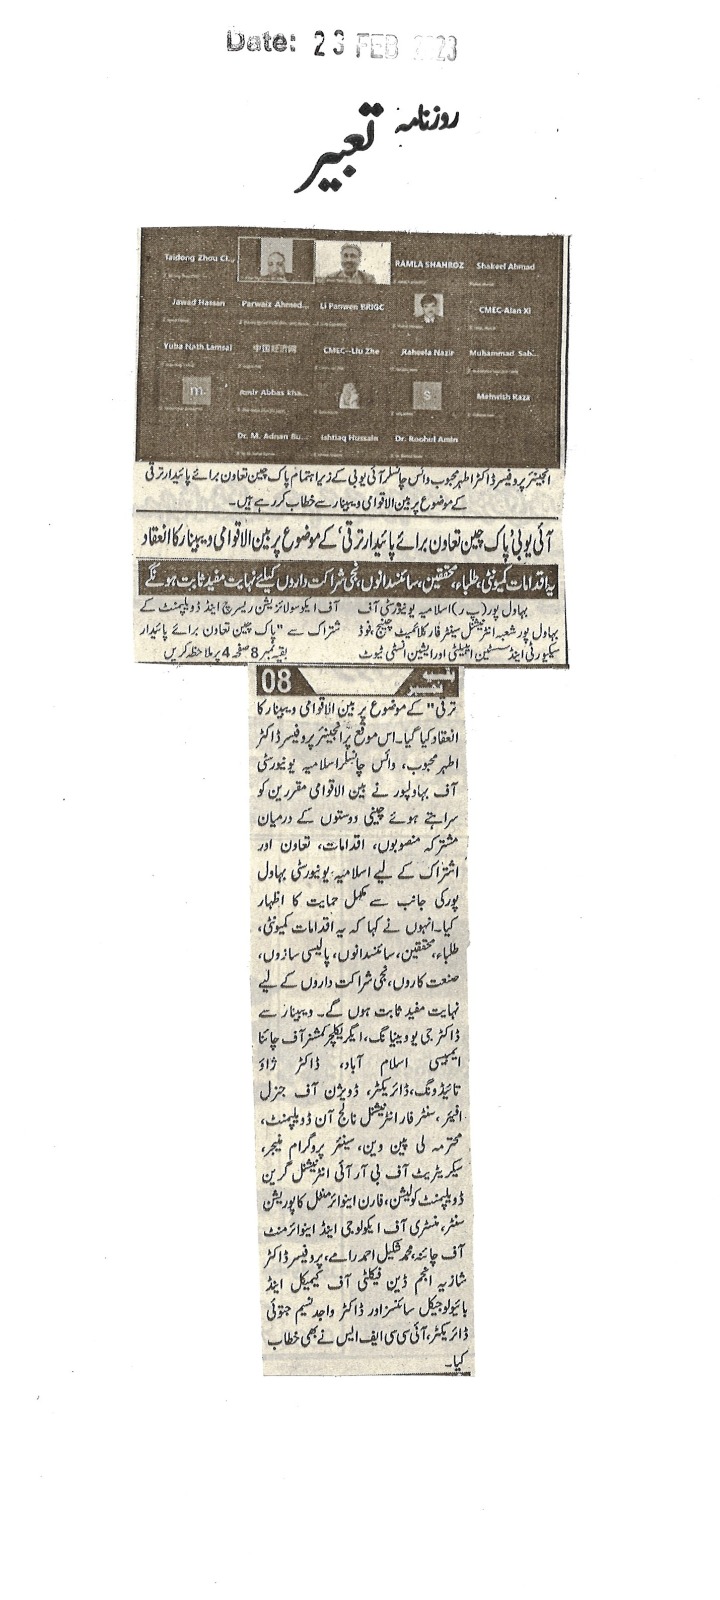 Date: 23 FEB 2023
روزنامہ تعبیر
Taidong Zhou Ci...
RAMLA SHAHROZ
Shakeel Ahmad
Jawad Hassan
Parwaiz Ahmed...
Li Panwen BRIGC
CMEC-Alan Xi
Yuba Nath Lamsal
中国经济网
CMEC--Liu Zhe
Raheela Nazir
Muhammad Sab...
m.
Amir Abbas kha...
s.
Mehvish Raza
Dr. M. Adnan Bu...
Ishtiaq Hussain
Dr. Roohul Amin
انجینئر پروفیسر ڈاکٹر اطہر محبوب وائس چانسلر آئی یو بی کے زیر اہتمام پاک چین تعاون برائے پائیدار ترقی
کے موضوع پر بین الاقوامی ویبینار سے خطاب کر رہے ہیں۔
آئی یو بی ’پاک چین تعاون برائے پائیدار ترقی‘ کے موضوع پر بین الاقوامی ویبینار کا انعقاد
یہ اقدامات کمیونٹی، طلباء، محققین، سائنسدانوں، نجی شراکت داروں کیلئے نہایت مفید ثابت ہونگے
بہاول پور (پ ر) اسلامیہ یونیورسٹی آف
بہاول پور شعبہ انٹرنیشنل سینٹر فار کلائمیٹ چینج، فوڈ
سیکیورٹی اینڈ سسٹین ایبلیٹی اور ایشین انسٹی ٹیوٹ
آف ایکو سولائزیشن ریسرچ اینڈ ڈویلپمنٹ کے
شتراک سے "پاک چین تعاون برائے پائیدار
بقیہ نمبر 8 صفحہ 4 پر ملاحظہ کریں
بقیہ نمبر 08
ترقی" کے موضوع پر بین الاقوامی ویبینار کا
انعقاد کیا گیا۔ اس موقع پر انجینئر پروفیسر ڈاکٹر
اطہر محبوب، وائس چانسلر اسلامیہ یونیورسٹی
آف بہاولپور نے بین الاقوامی مقررین کو
سراہتے ہوئے چینی دوستوں کے درمیان
مشترکہ منصوبوں، اقدامات، تعاون اور
اشتراک کے لیے اسلامیہ یونیورسٹی بہاول
پور کی جانب سے مکمل حمایت کا اظہار
کیا۔ انہوں نے کہا کہ یہ اقدامات کمیونٹی،
طلباء، محققین، سائنسدانوں، پالیسی سازوں،
صنعت کاروں، نجی شراکت داروں کے لیے
نہایت مفید ثابت ہوں گے۔ ویبینار سے
ڈاکٹر جی یو وینیانگ، ایگریکلچر کمشنر آف چائنا
ایمبیسی اسلام آباد، ڈاکٹر ژاؤ
تائیڈونگ، ڈائریکٹر، ڈویژن آف جنرل
افیئر، سنٹر فار انٹرنیشنل نالج آن ڈویلپمنٹ،
محترمہ لی پین وین، سینئر پروگرام منیجر،
سیکریٹریٹ آف بی آر آئی انٹرنیشنل گرین
ڈویلپمنٹ کولیشن، فارن اینوائرمنٹل کاپوریشن
سنٹر، منسٹری آف ایکولوجی اینڈ اینوائرمنٹ
آف چائنہ، محمد شکیل احمد رامے، پروفیسر ڈاکٹر
شازیہ انجم ڈین فیکلٹی آف کیمیکل اینڈ
بائیولوجیکل سائنسز اور ڈاکٹر واجد نسیم جتوئی
ڈائریکٹر، آئی سی سی ایف ایس نے بھی خطاب
کیا۔